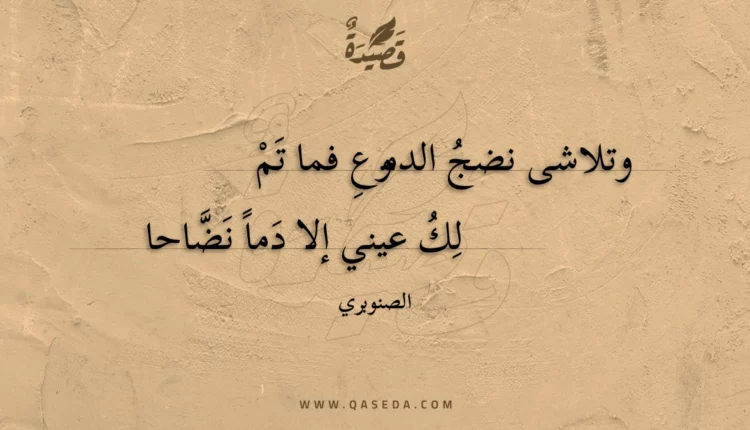 قَصِيْدَةٌ
وتلاشى نضجُ الدموعِ فما تَمْ
لِكُ عيني إلا دَماً نَضَّاحا
الصنوبري
WWW.QASEDA.COM